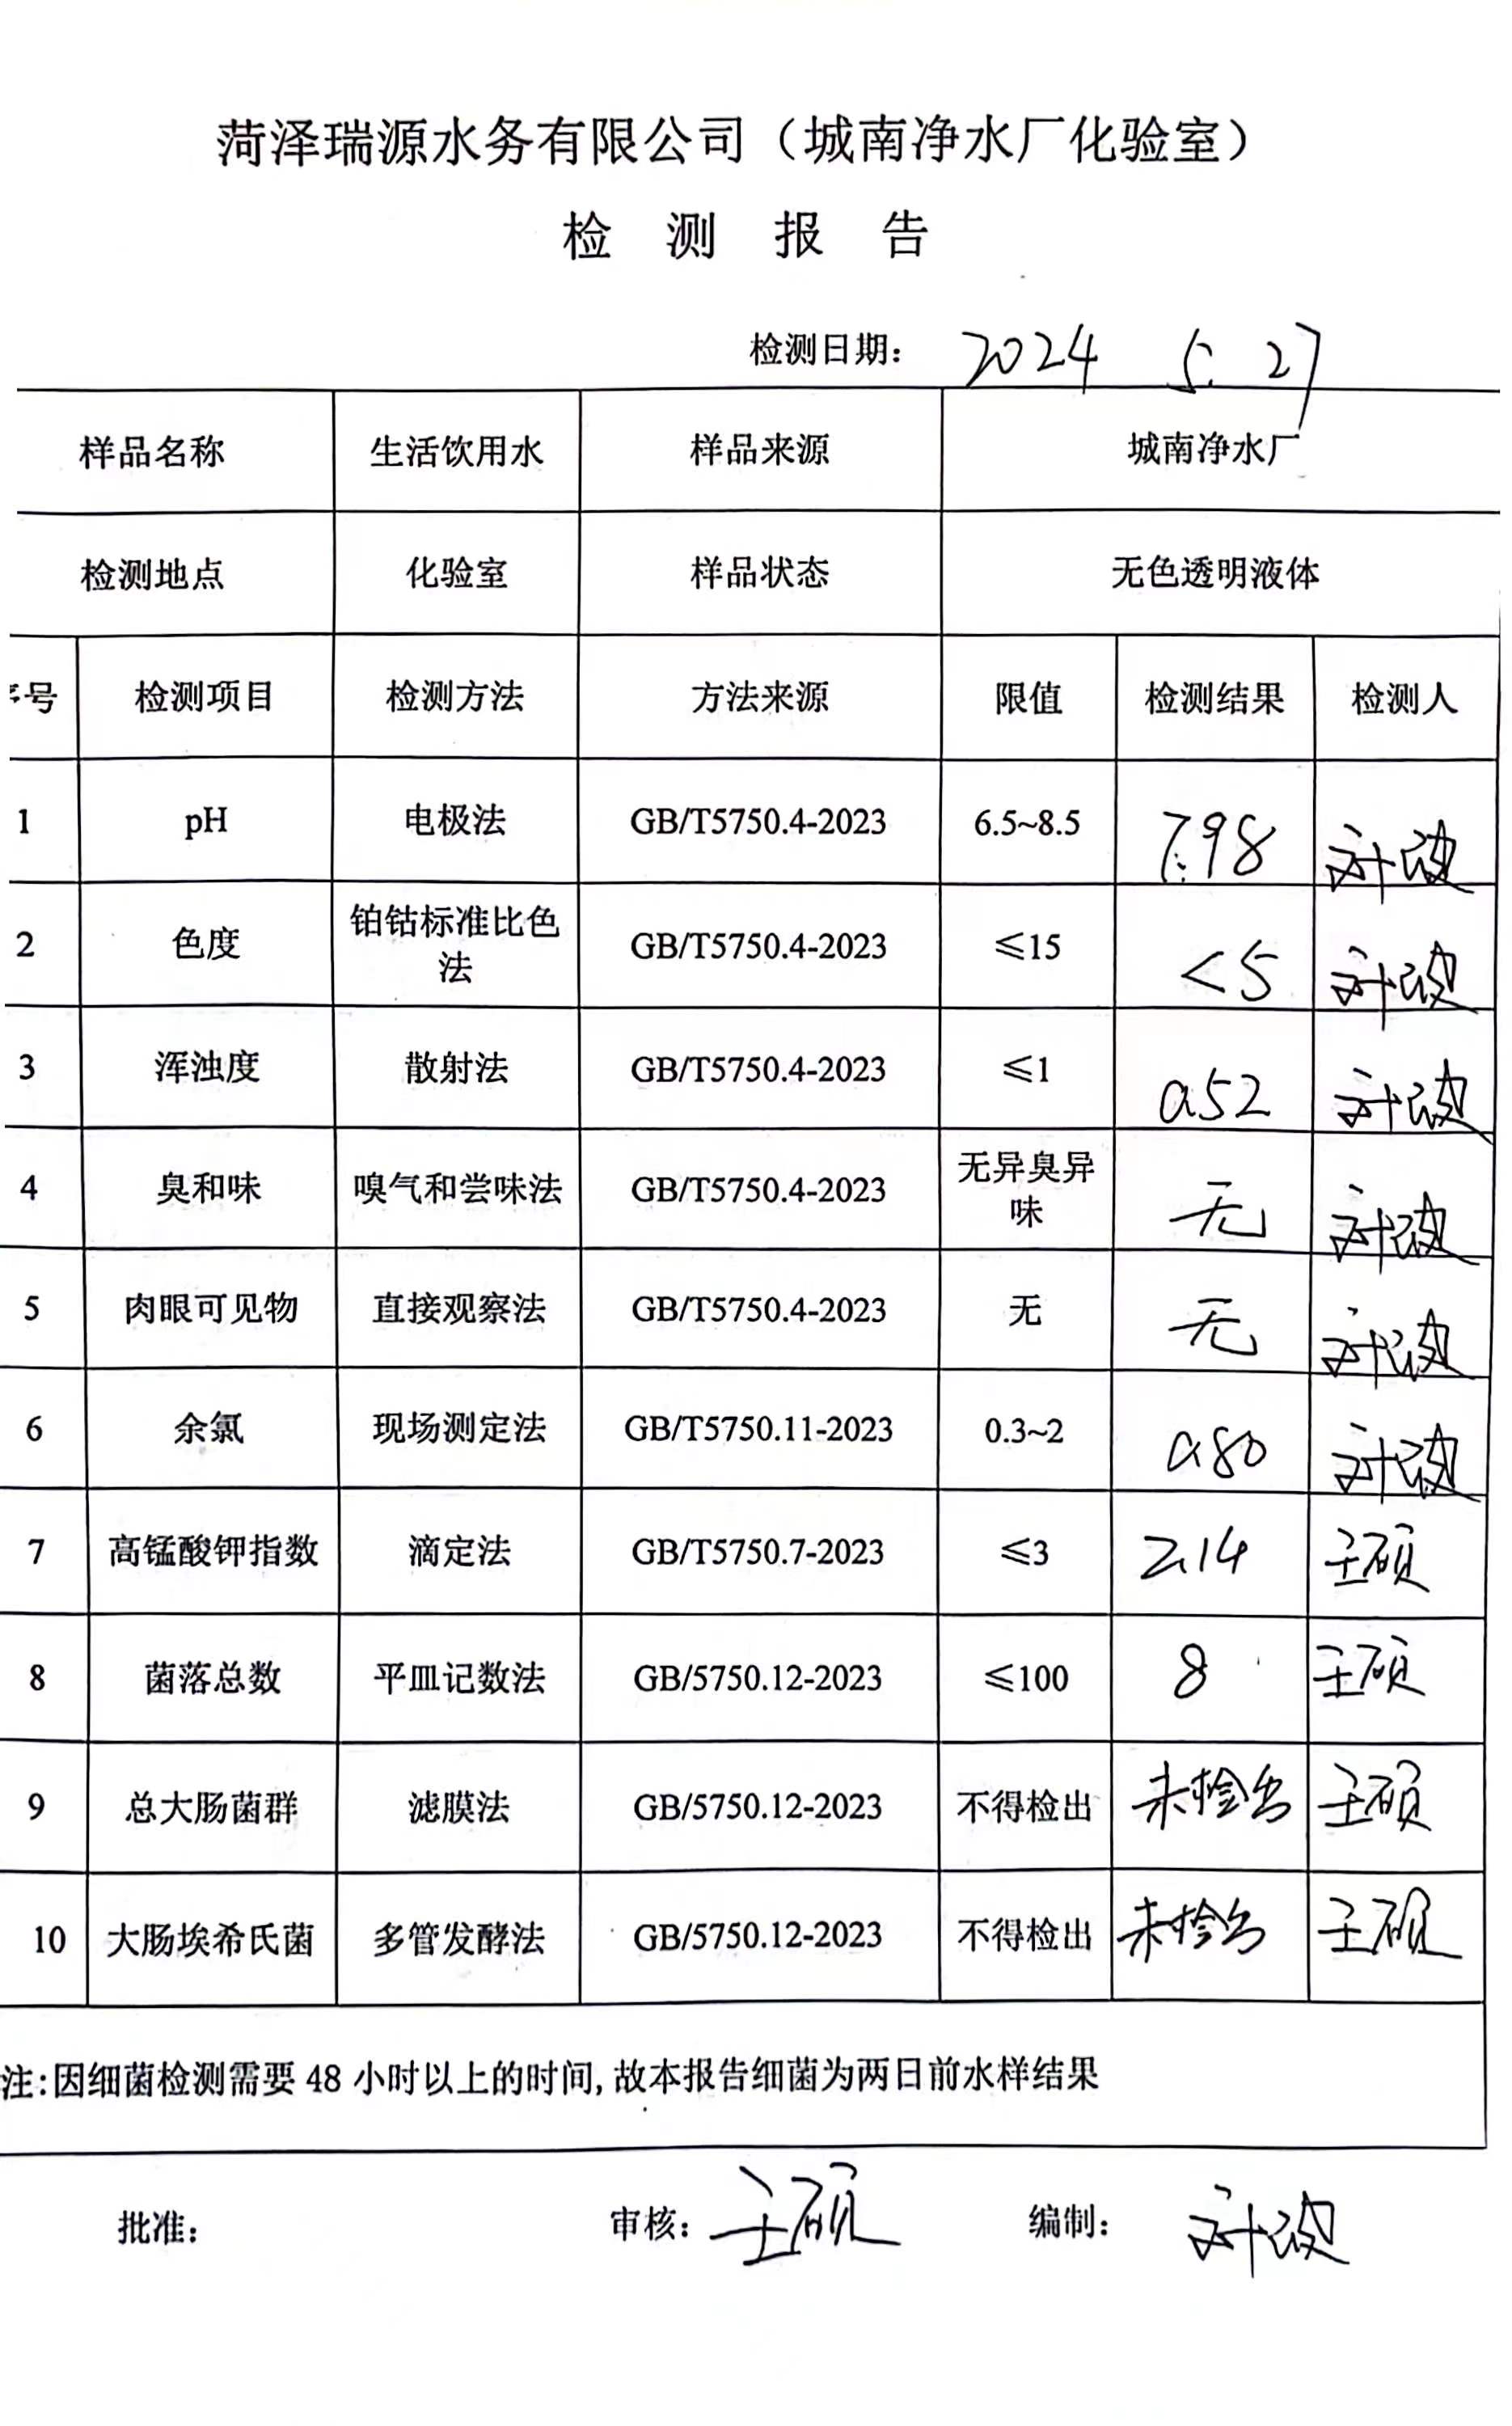 菏泽瑞源水务有限公司（城南净水厂化验室）
检 测 报 告
检测日期： 2024 5. 27
样品名称 生活饮用水 样品来源 城南净水厂
检测地点 化验室 样品状态 无色透明液体
序号 检测项目 检测方法 方法来源 限值 检测结果 检测人
1 pH 电极法 GB/T5750.4-2023 6.5~8.5 7.98
2 色度 铂钴标准比色法 GB/T5750.4-2023 ≤15 <5
3 浑浊度 散射法 GB/T5750.4-2023 ≤1 0.52
4 臭和味 嗅气和尝味法 GB/T5750.4-2023 无异臭异味 无
5 肉眼可见物 直接观察法 GB/T5750.4-2023 无 无
6 余氯 现场测定法 GB/T5750.11-2023 0.3~2 0.80
7 高锰酸钾指数 滴定法 GB/T5750.7-2023 ≤3 2.14 王硕
8 菌落总数 平皿记数法 GB/5750.12-2023 ≤100 8 王硕
9 总大肠菌群 滤膜法 GB/5750.12-2023 不得检出 未检出 王硕
10 大肠埃希氏菌 多管发酵法 GB/5750.12-2023 不得检出 未检出 王硕
注:因细菌检测需要 48 小时以上的时间,故本报告细菌为两日前水样结果
批准： 审核：王硕 编制：